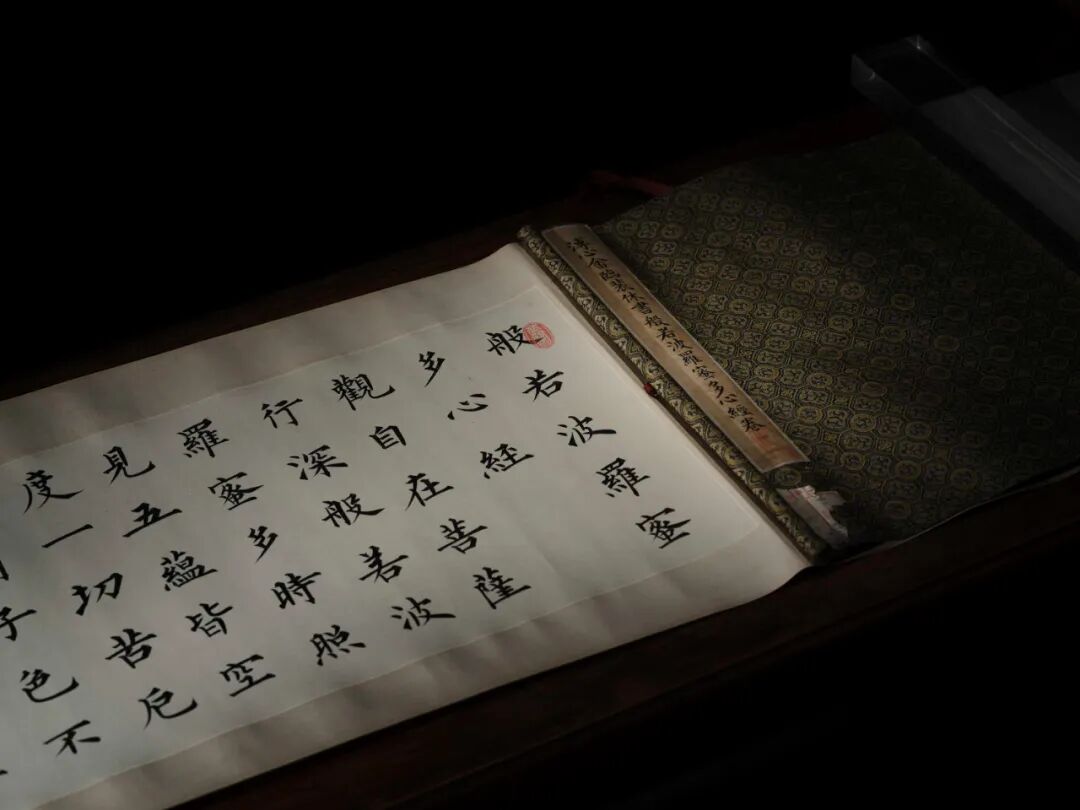 溥心畬臨裴休書般若波羅蜜多心經卷
般若波羅蜜
多心經
觀自在菩薩
行深般若波
羅蜜多時照
見五蘊皆空
度一切苦厄
子色不